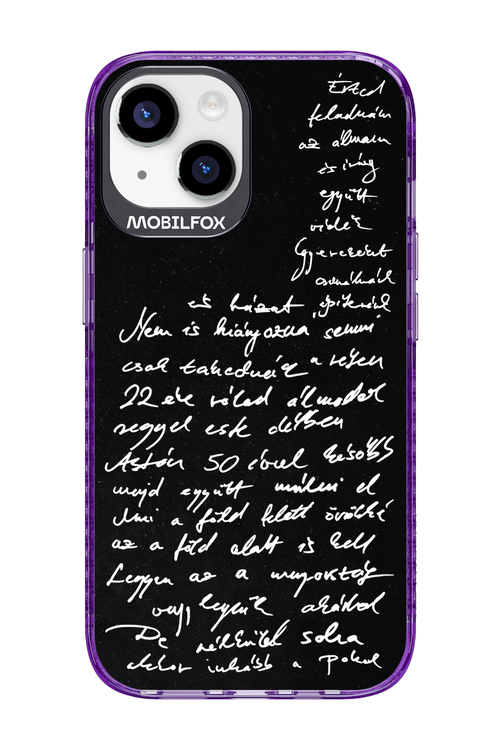 MOBILFOX
Érted
feladnám
az álmaim
és így
együtt
vidék
Gyereket
csinálnánk
és házat építenénk
Nem is hiányozna semmi
csak takednánk a réten
22 éve rólad álmodok
reggel este délben
Aztán 50 évvel később
majd együtt múlni el
Ami a föld felett örökké
az a föld alatt is kell
Legyen az a mennyország
vagy legyünk akárhol
De nélküled soha
akkor inkább a pokol